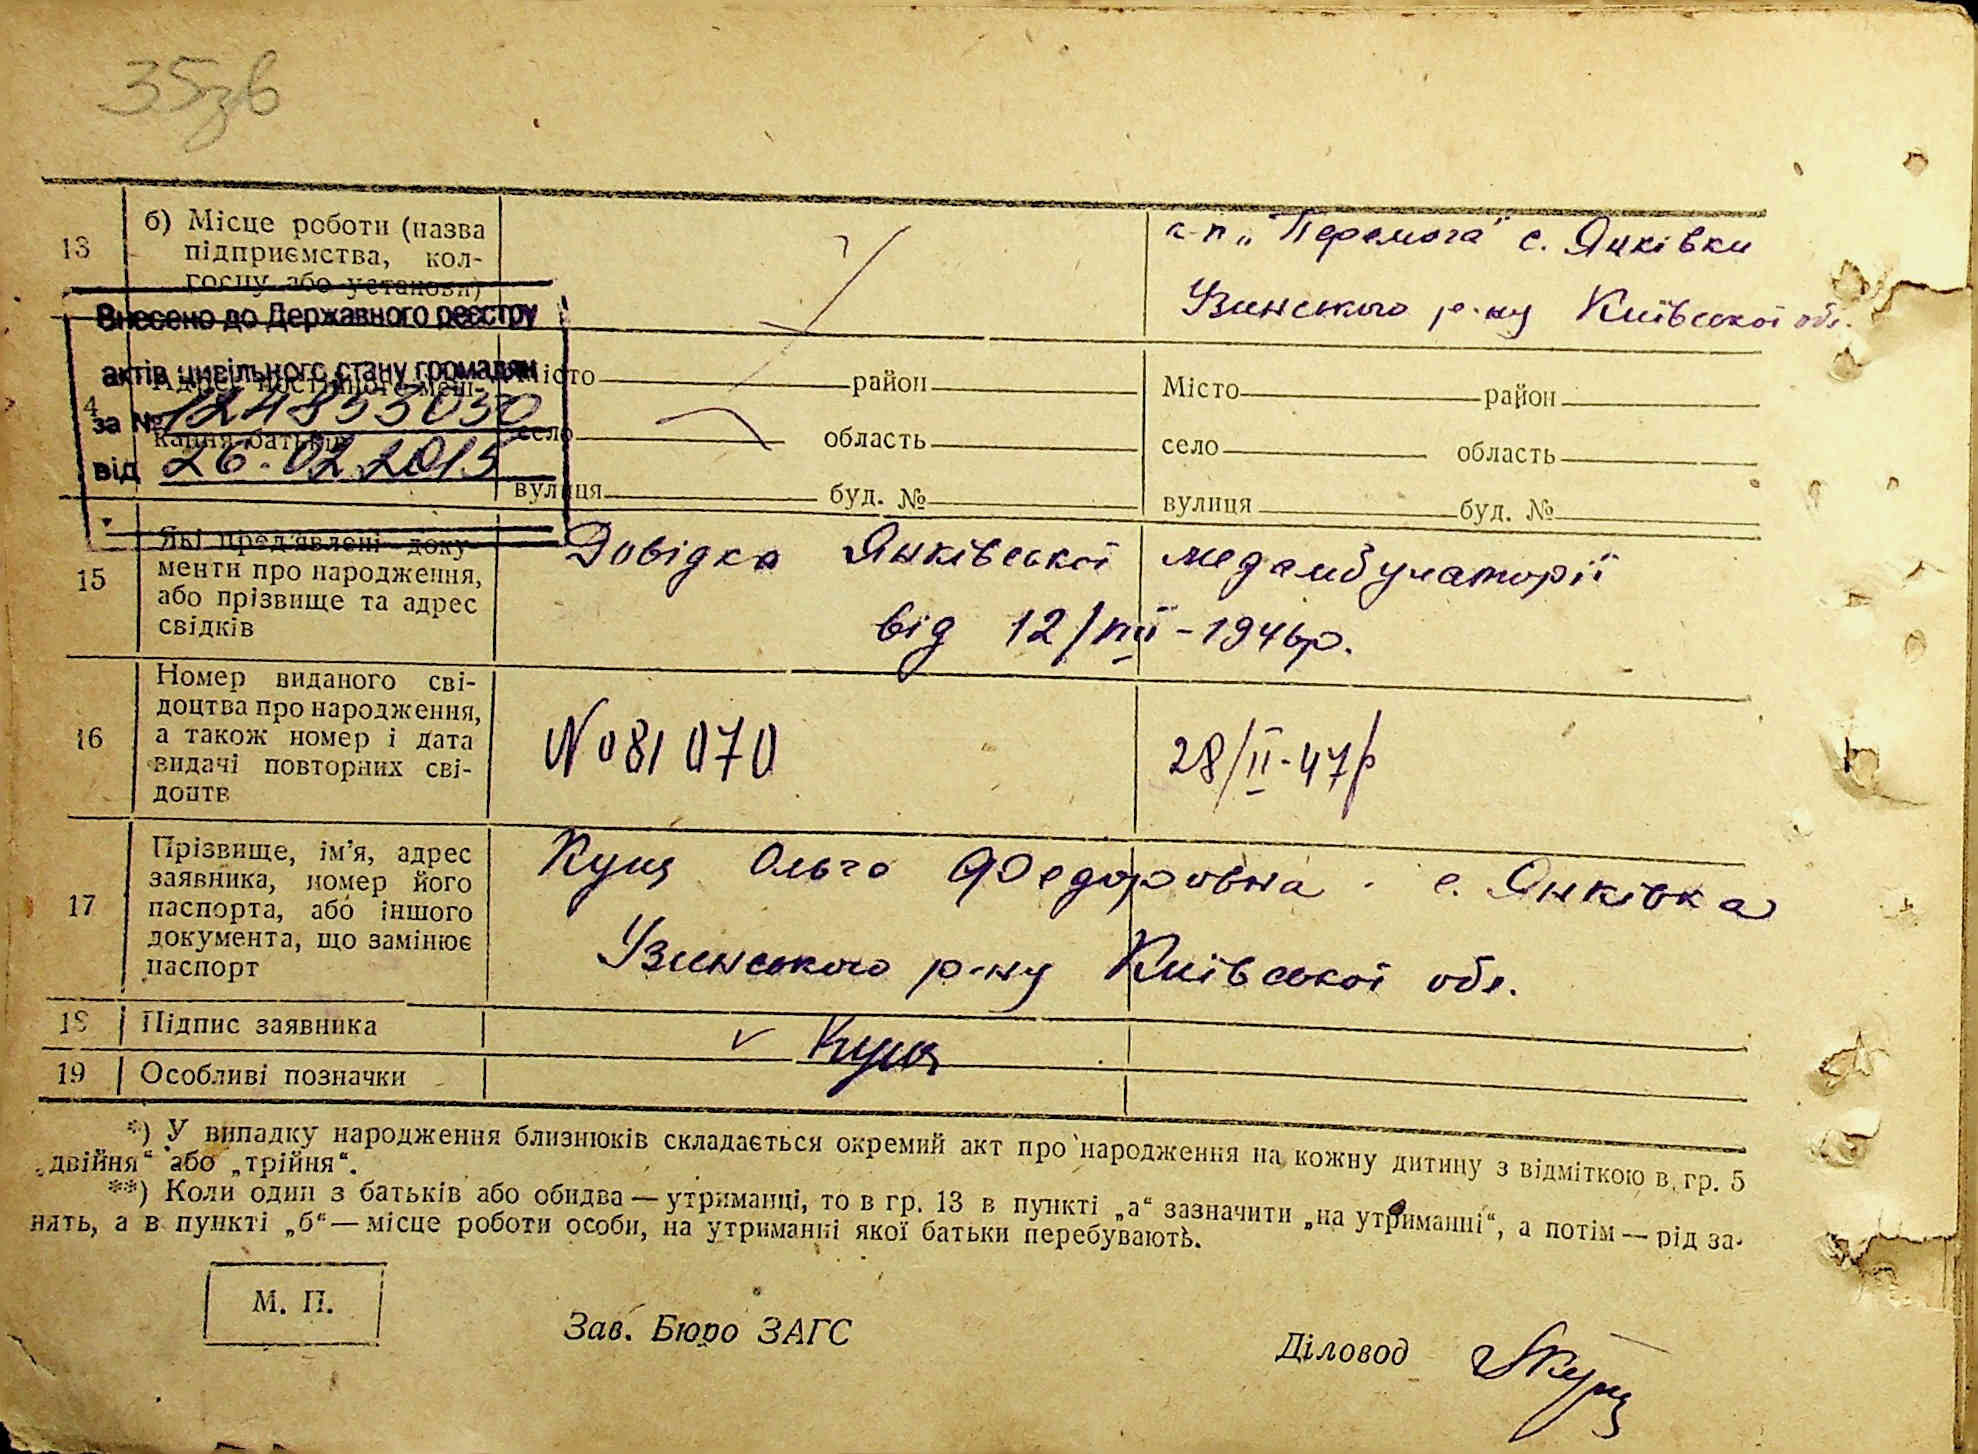 35зв
13
б) Місце роботи (назва
підприємства, кол-
госпу або установи)
к-п „Перемога" с. Янківки
Узинського р-ну Київської обл.
Внесено до Державного реєстру
актів цивільного стану громадян
за № 124853030
від 26.02.2015
4
Адрес постійного меш-
кання батьків
Місто район
село область
вулиця буд. №
Місто район
село область
вулиця буд. №
15
Які пред'явлені доку-
менти про народження,
або прізвище та адрес
свідків
Довідка Янківської медамбулаторії
від 12/ -1946р.
16
Номер виданого сві-
доцтва про народження,
а також номер і дата
видачі повторних сві-
доцтв
№ 081070
28/II-47р
17
Прізвище, ім'я, адрес
заявника, номер його
паспорта, або іншого
документа, що замінює
паспорт
Кущ Ольга Федоровна. с. Янківка
Узинського р-ну Київської обл.
18 Підпис заявника
Кущ
19 Особливі позначки
*) У випадку народження близнюків складається окремий акт про народження на кожну дитину з відміткою в гр. 5
„двійня“ або „трійня“.
**) Коли один з батьків або обидва — утриманці, то в гр. 13 в пункті „а“ зазначити „на утриманні“, а потім — рід за-
нять, а в пункті „б“ — місце роботи особи, на утриманні якої батьки перебувають.
М. П.
Зав. Бюро ЗАГС
Діловод